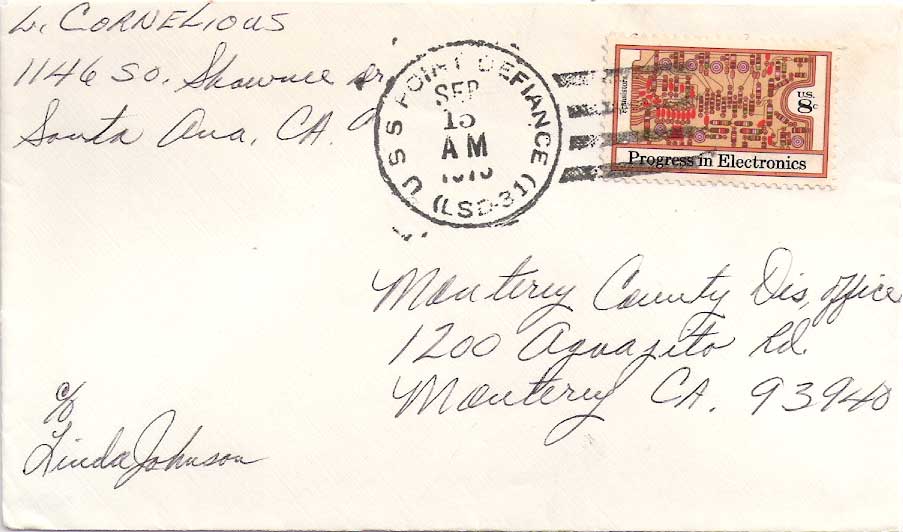 L. CORNELIOUS
1146 SO. Shawnee dr
Santa Ana, CA.
USS POINT DEFIANCE (LSD-31)
SEP
15
AM
U.S. 8c
Progress in Electronics
Monterey County Dis, office
1200 Aguajito Rd.
Monterey CA. 93940
c/o
Linda Johnson